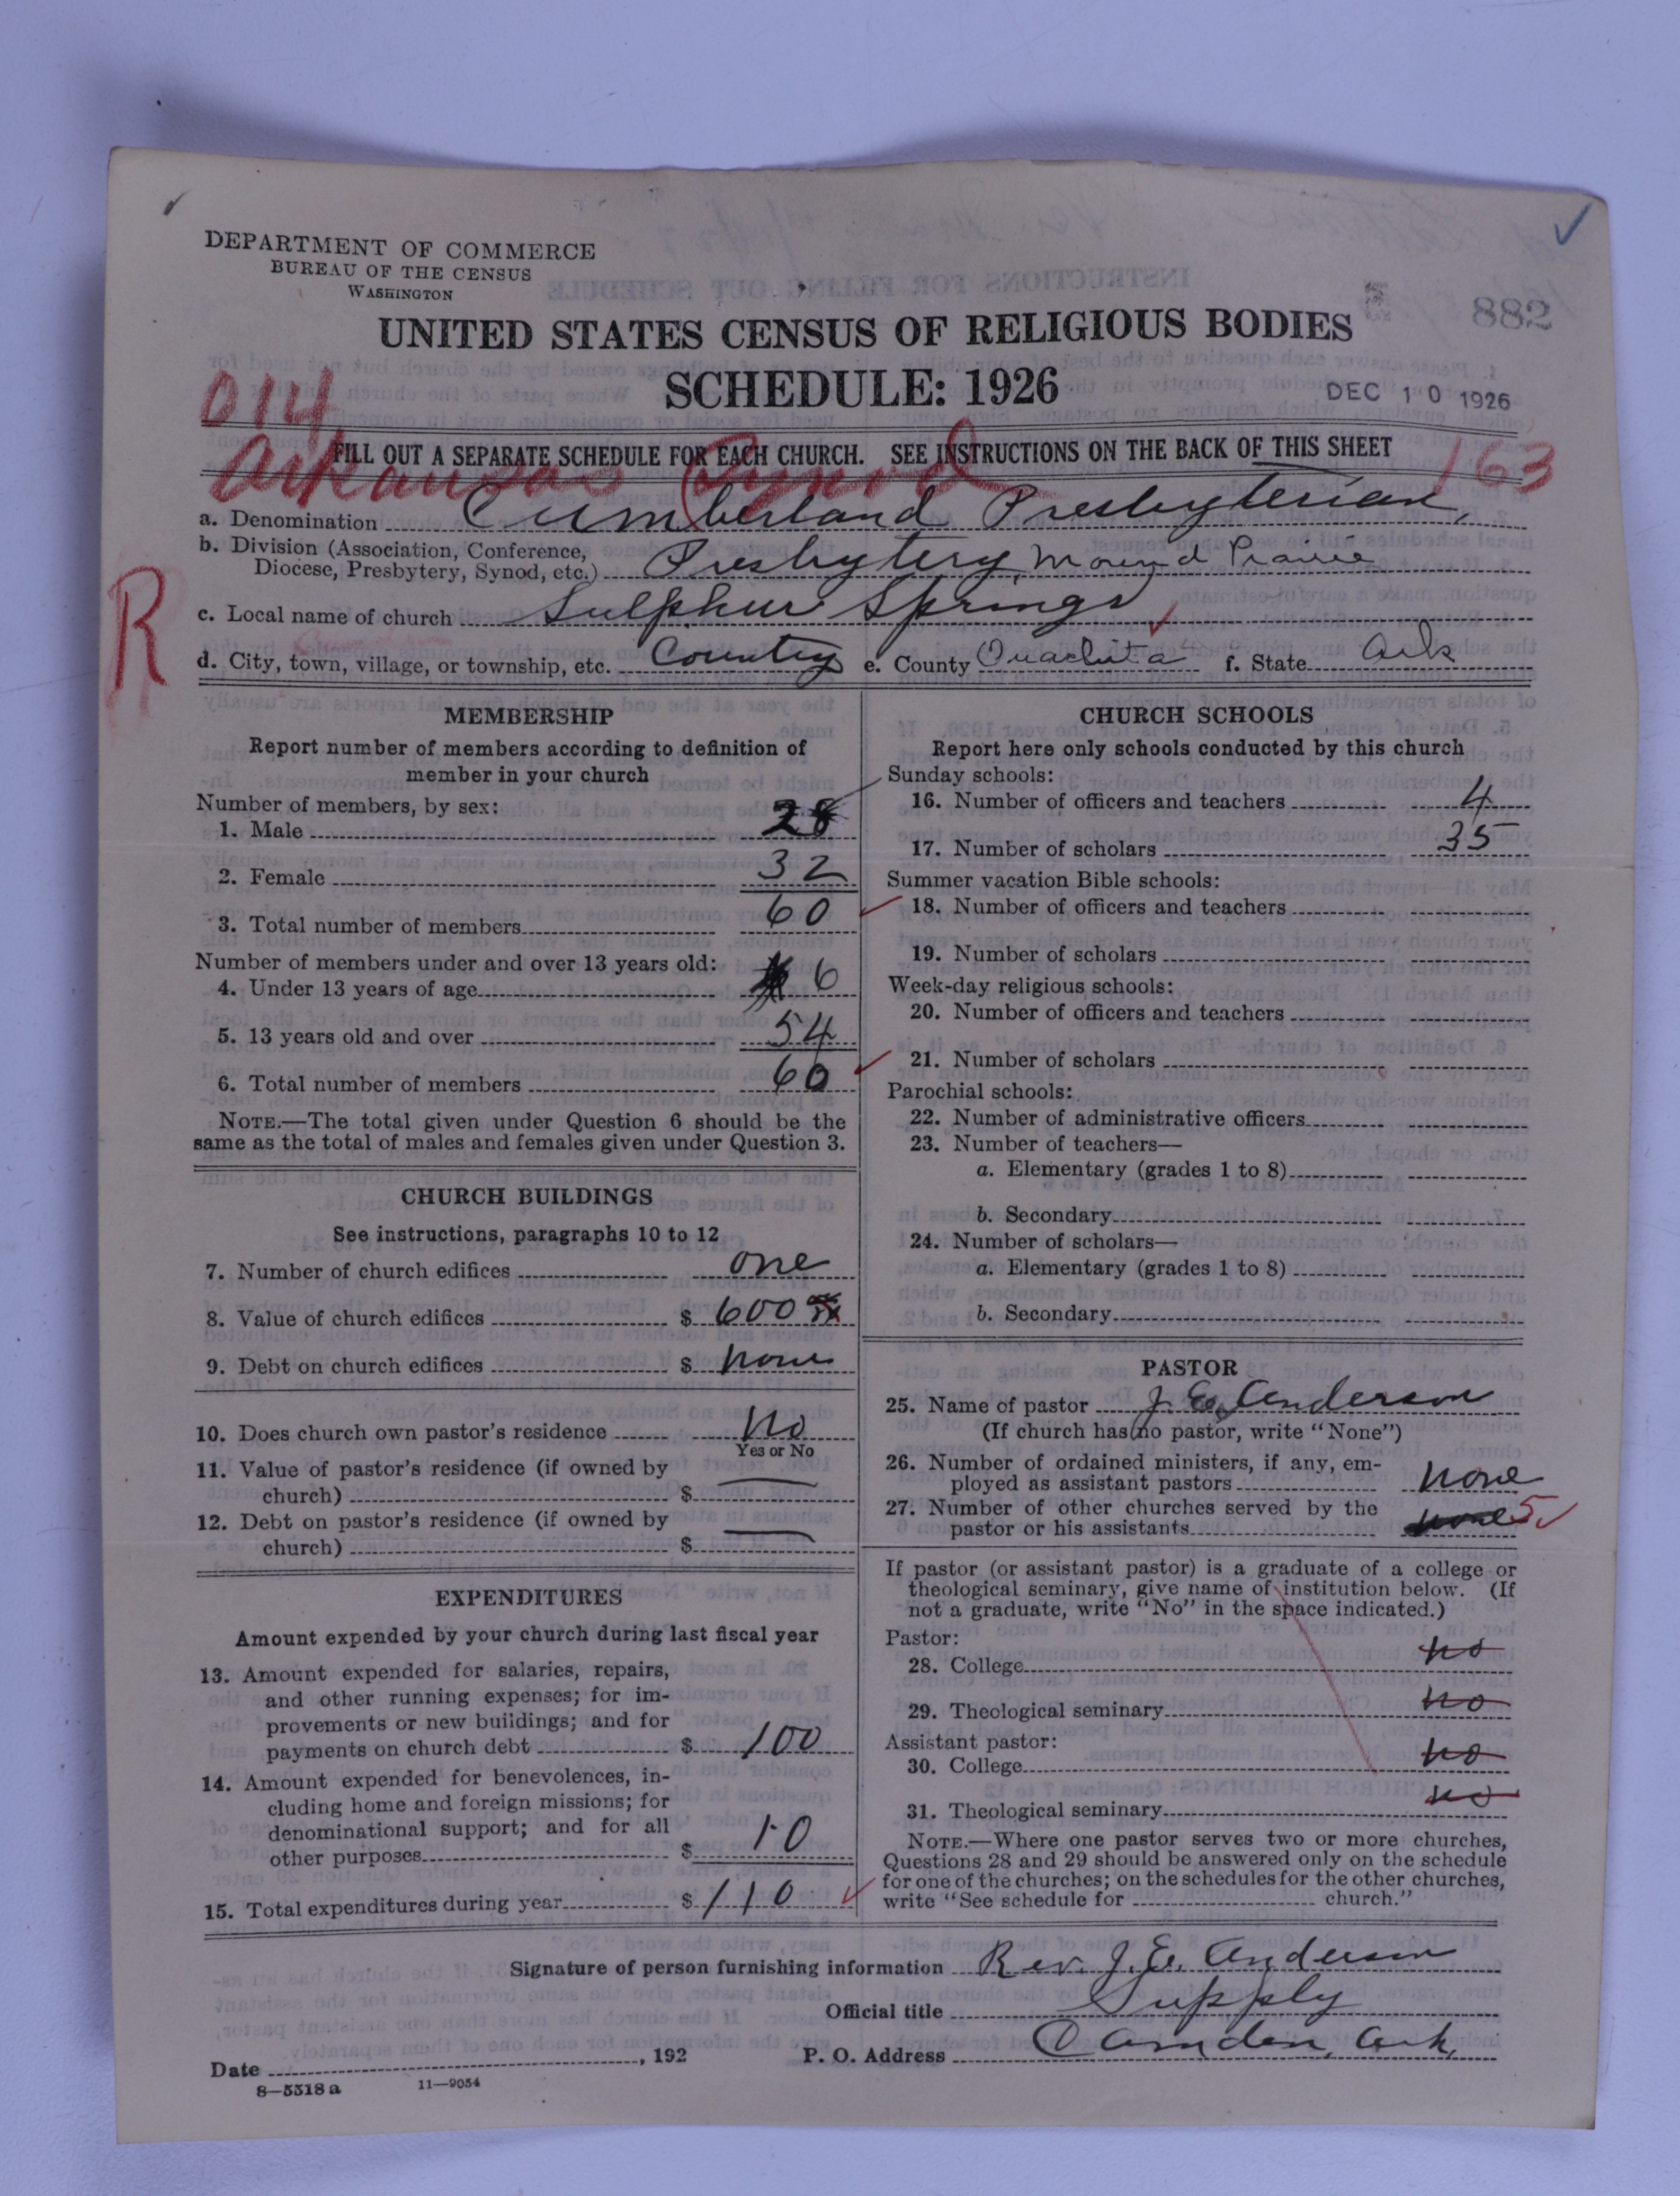 DEPARTMENT OF COMMERCE
BUREAU OF THE CENSUS
WASHINGTON
882
UNITED STATES CENSUS OF RELIGIOUS BODIES
SCHEDULE: 1926
DEC 10 1926
014
FILL OUT A SEPARATE SCHEDULE FOR EACH CHURCH. SEE INSTRUCTIONS ON THE BACK OF THIS SHEET
Arkansas Synod
163
a. Denomination Cumberland Presbyterian,
b. Division (Association, Conference,
Diocese, Presbytery, Synod, etc.) Presbytery, Mound Prairie
c. Local name of church Sulphur Springs
R
d. City, town, village, or township, etc. Country e. County Ouachita f. State Ark
MEMBERSHIP
Report number of members according to definition of
member in your church
Number of members, by sex:
1. Male 28
2. Female 32
3. Total number of members 60
Number of members under and over 13 years old:
4. Under 13 years of age 6
5. 13 years old and over 54
6. Total number of members 60
NOTE.—The total given under Question 6 should be the
same as the total of males and females given under Question 3.
CHURCH BUILDINGS
See instructions, paragraphs 10 to 12
7. Number of church edifices one
8. Value of church edifices $ 600
9. Debt on church edifices $ none
10. Does church own pastor's residence No
Yes or No
11. Value of pastor's residence (if owned by
church) $ —
12. Debt on pastor's residence (if owned by
church) $ —
EXPENDITURES
Amount expended by your church during last fiscal year
13. Amount expended for salaries, repairs,
and other running expenses; for im-
provements or new buildings; and for
payments on church debt $ 100
14. Amount expended for benevolences, in-
cluding home and foreign missions; for
denominational support; and for all
other purposes $ 10
15. Total expenditures during year $ 110
CHURCH SCHOOLS
Report here only schools conducted by this church
Sunday schools:
16. Number of officers and teachers 4
17. Number of scholars 35
Summer vacation Bible schools:
18. Number of officers and teachers
19. Number of scholars
Week-day religious schools:
20. Number of officers and teachers
21. Number of scholars
Parochial schools:
22. Number of administrative officers
23. Number of teachers—
a. Elementary (grades 1 to 8)
b. Secondary
24. Number of scholars—
a. Elementary (grades 1 to 8)
b. Secondary
PASTOR
25. Name of pastor J. E. Anderson
(If church has no pastor, write "None")
26. Number of ordained ministers, if any, em-
ployed as assistant pastors none
27. Number of other churches served by the
pastor or his assistants none 5
If pastor (or assistant pastor) is a graduate of a college or
theological seminary, give name of institution below. (If
not a graduate, write "No" in the space indicated.)
Pastor:
28. College no
29. Theological seminary no
Assistant pastor:
30. College no
31. Theological seminary no
NOTE.—Where one pastor serves two or more churches,
Questions 28 and 29 should be answered only on the schedule
for one of the churches; on the schedules for the other churches,
write "See schedule for church."
Signature of person furnishing information Rev. J. E. Anderson
Official title Supply
Date , 192 P. O. Address Camden, Ark.
8—5518a 11—9054